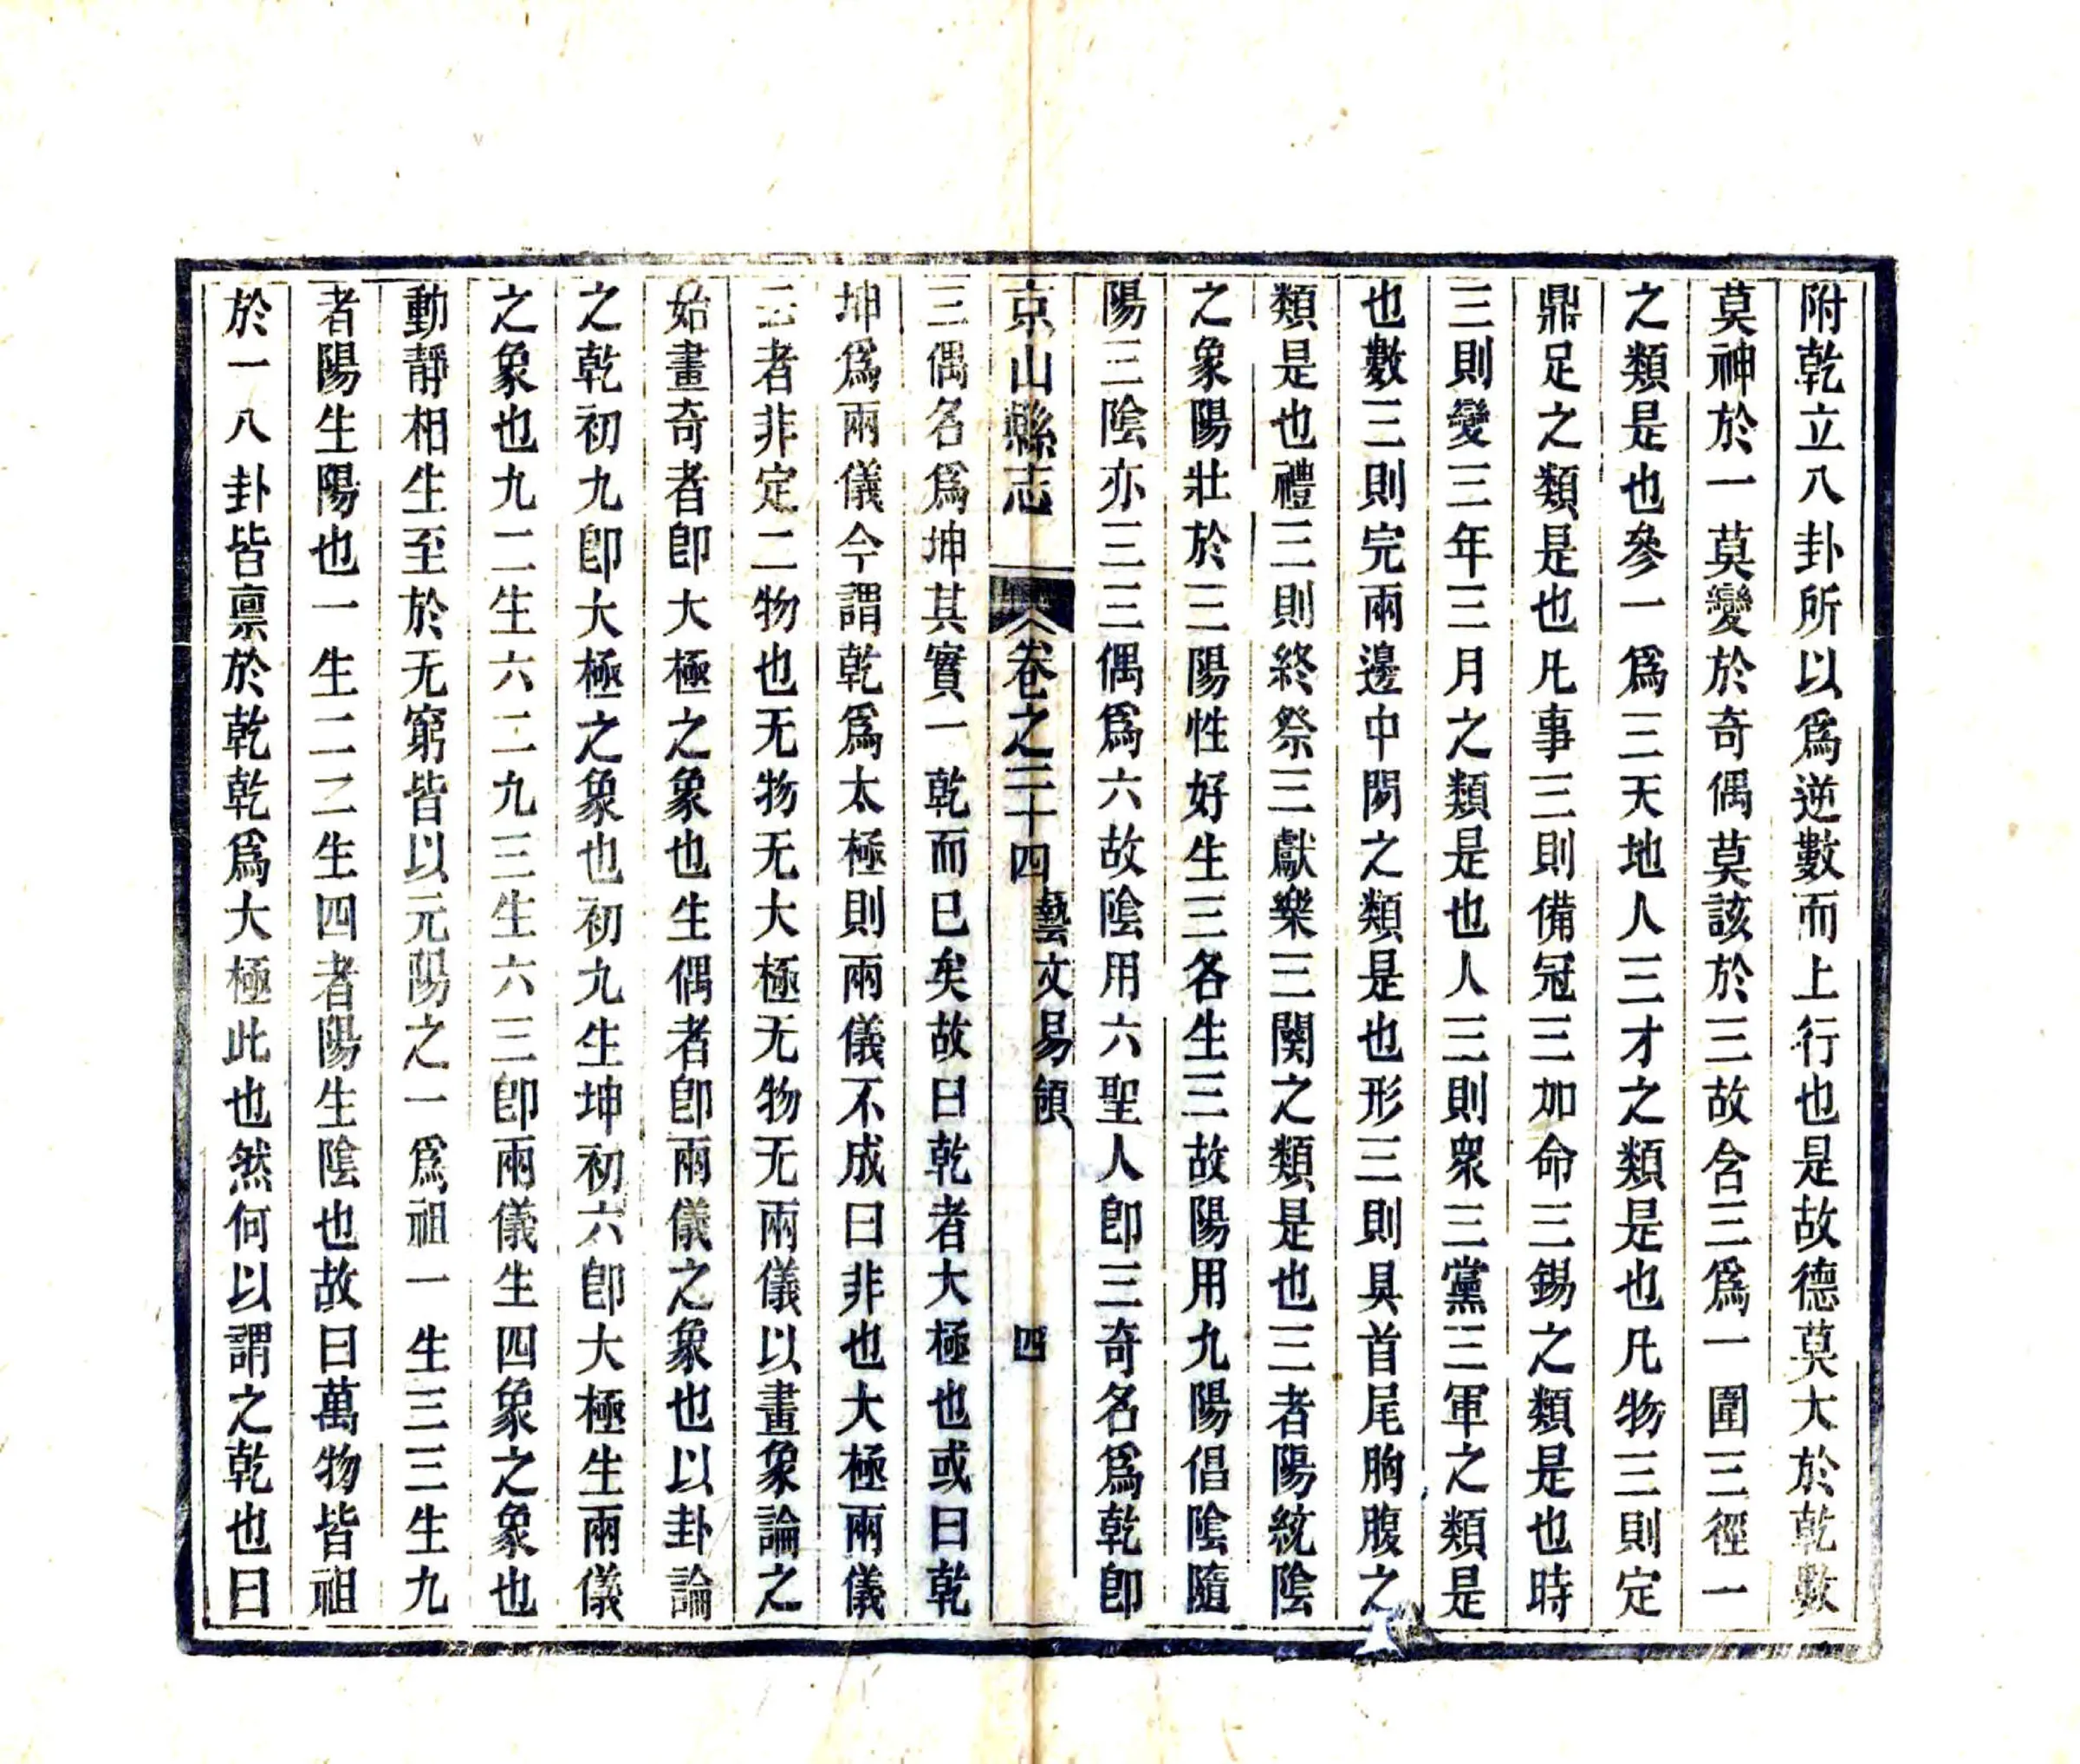 附乾立八卦所以爲逆數而上行也是故德莫大於乾數
莫神於一莫變於奇偶莫該於三故含三爲一圍三徑一
之類是也參一爲三天地人三才之類是也凡物三則定
鼎足之類是也凡事三則備冠三加命三錫之類是也時
三則變三年三月之類是也人三則衆三黨三軍之類是
也數三則完兩邊中間之類是也形三則具首尾胸腹之
類是也禮三則終祭三獻樂三闋之類是也三者陽統陰
之象陽壯於三陽性好生三各生三故陽用九陽倡陰隨
陽三陰亦三三偶爲六故陰用六聖人卽三奇名爲乾卽
京山縣志
卷之二十四
藝文易領
四
三偶名爲坤其實一乾而已矣故曰乾者大極也或曰乾
坤爲兩儀今謂乾爲太極則兩儀不成曰非也大極兩儀
云者非定二物也无物无大極无物无兩儀以畫象論之
始畫奇者卽大極之象也生偶者卽兩儀之象也以卦論
之乾初九卽大極之象也初九生坤初六卽大極生兩儀
之象也九二生六二九三生六三卽兩儀生四象之象也
動靜相生至於无窮皆以元陽之一爲祖一生三三生九
者陽生陽也一生二二生四者陽生陰也故曰萬物皆祖
於一八卦皆禀於乾乾爲大極此也然何以謂之乾也曰